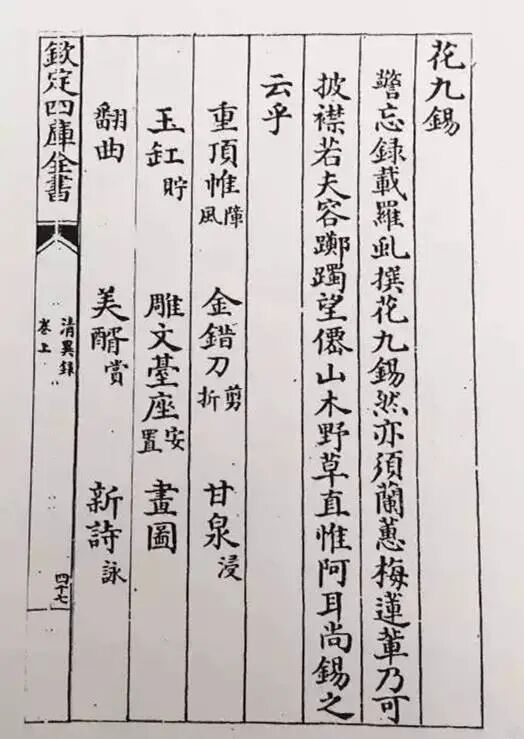 花九錫
警忘録載羅虬撰花九錫然亦須蘭蕙梅蓮軰乃可
披襟若夫容躑躅望僊山木野草直惟阿耳尚錫之
云乎
重頂帷障風 金錯刀剪折 甘泉浸
玉缸貯 雕文臺座安置 畫圖
翻曲 美醑賞 新詩詠
欽定四庫全書
清異録
卷上
四十七